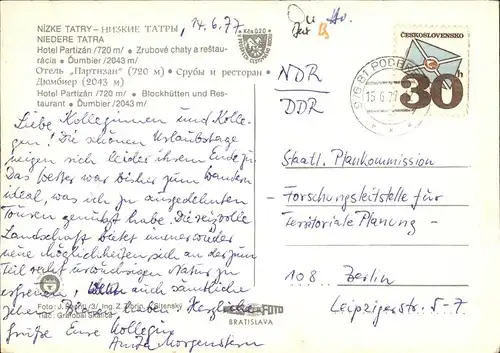 NÍZKE TATRY - НИЗКИЕ ТАТРЫ
14.6.77
NIEDERE TATRA
Hotel Partizán /720 m/ • Zrubové chaty a reštau-
rácia • Ďumbier /2043 m/
Отель „Партизан“ (720 м) • Срубы и ресторан •
Дюмбиер (2043 м)
Hotel Partizán /720 m/ • Blockhütten und Res-
taurant • Ďumbier /2043 m/
Kčs 0,20
Liebe Kolleginnen und Kolle-
gen! Die schönen Urlaubstage
neigen sich leider ihrem Ende zu.
Das Wetter war bisher zum Wandern
ideal, was ich zu ausgedehnten
Touren genutzt habe. Die reizvolle
Landschaft bietet immer wieder
neue Möglichkeiten sich an der zum
Teil recht urwüchsigen Natur zu
erfreuen, auch sämtliche
Zehen sind am Leben. Herzliche
Grüße Eure Kollegin
Anita Morgenstern
Bratislava
ČESKOSLOVENSKO
30h
976 81 PODBR
15.6.77
NDR
DDR
Staatl. Plankommission
- Forschungsleitstelle für
Territoriale Planung -
108 Berlin
Leipzigerstr. 5-7